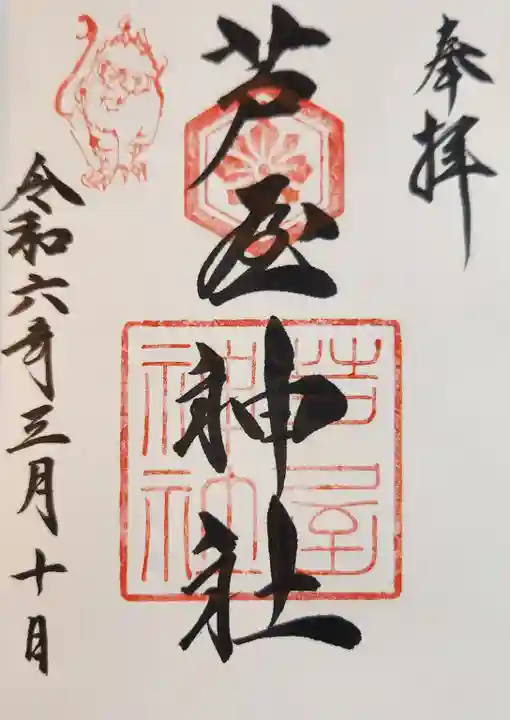 奉拝
芦屋神社
芦屋
神社
令和六年三月十日